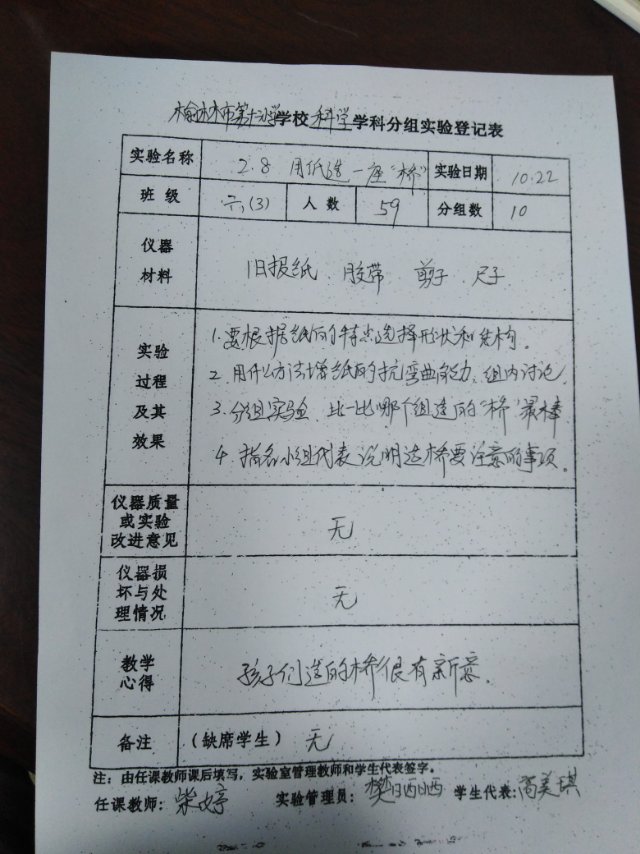 榆林市第十小学学校科学学科分组实验登记表
实验名称 2.8 用纸造一座“桥” 实验日期 10.22
班级 六(3) 人数 59 分组数 10
仪器材料 旧报纸 胶带 剪子 尺子
实验过程及其效果
1.要根据纸的特点选择形状和结构。
2.用什么方法增纸的抗弯曲能力,组内讨论。
3.分组实验 比一比哪个组造的“桥”最棒
4.指名小组代表说明造桥要注意的事项。
仪器质量或实验改进意见 无
仪器损坏与处理情况 无
教学心得 孩子们造的桥很有新意。
备注 (缺席学生) 无
注:由任课教师课后填写,实验室管理教师和学生代表签字。
任课教师:柴婷 实验管理员:樊 学生代表:高美琪